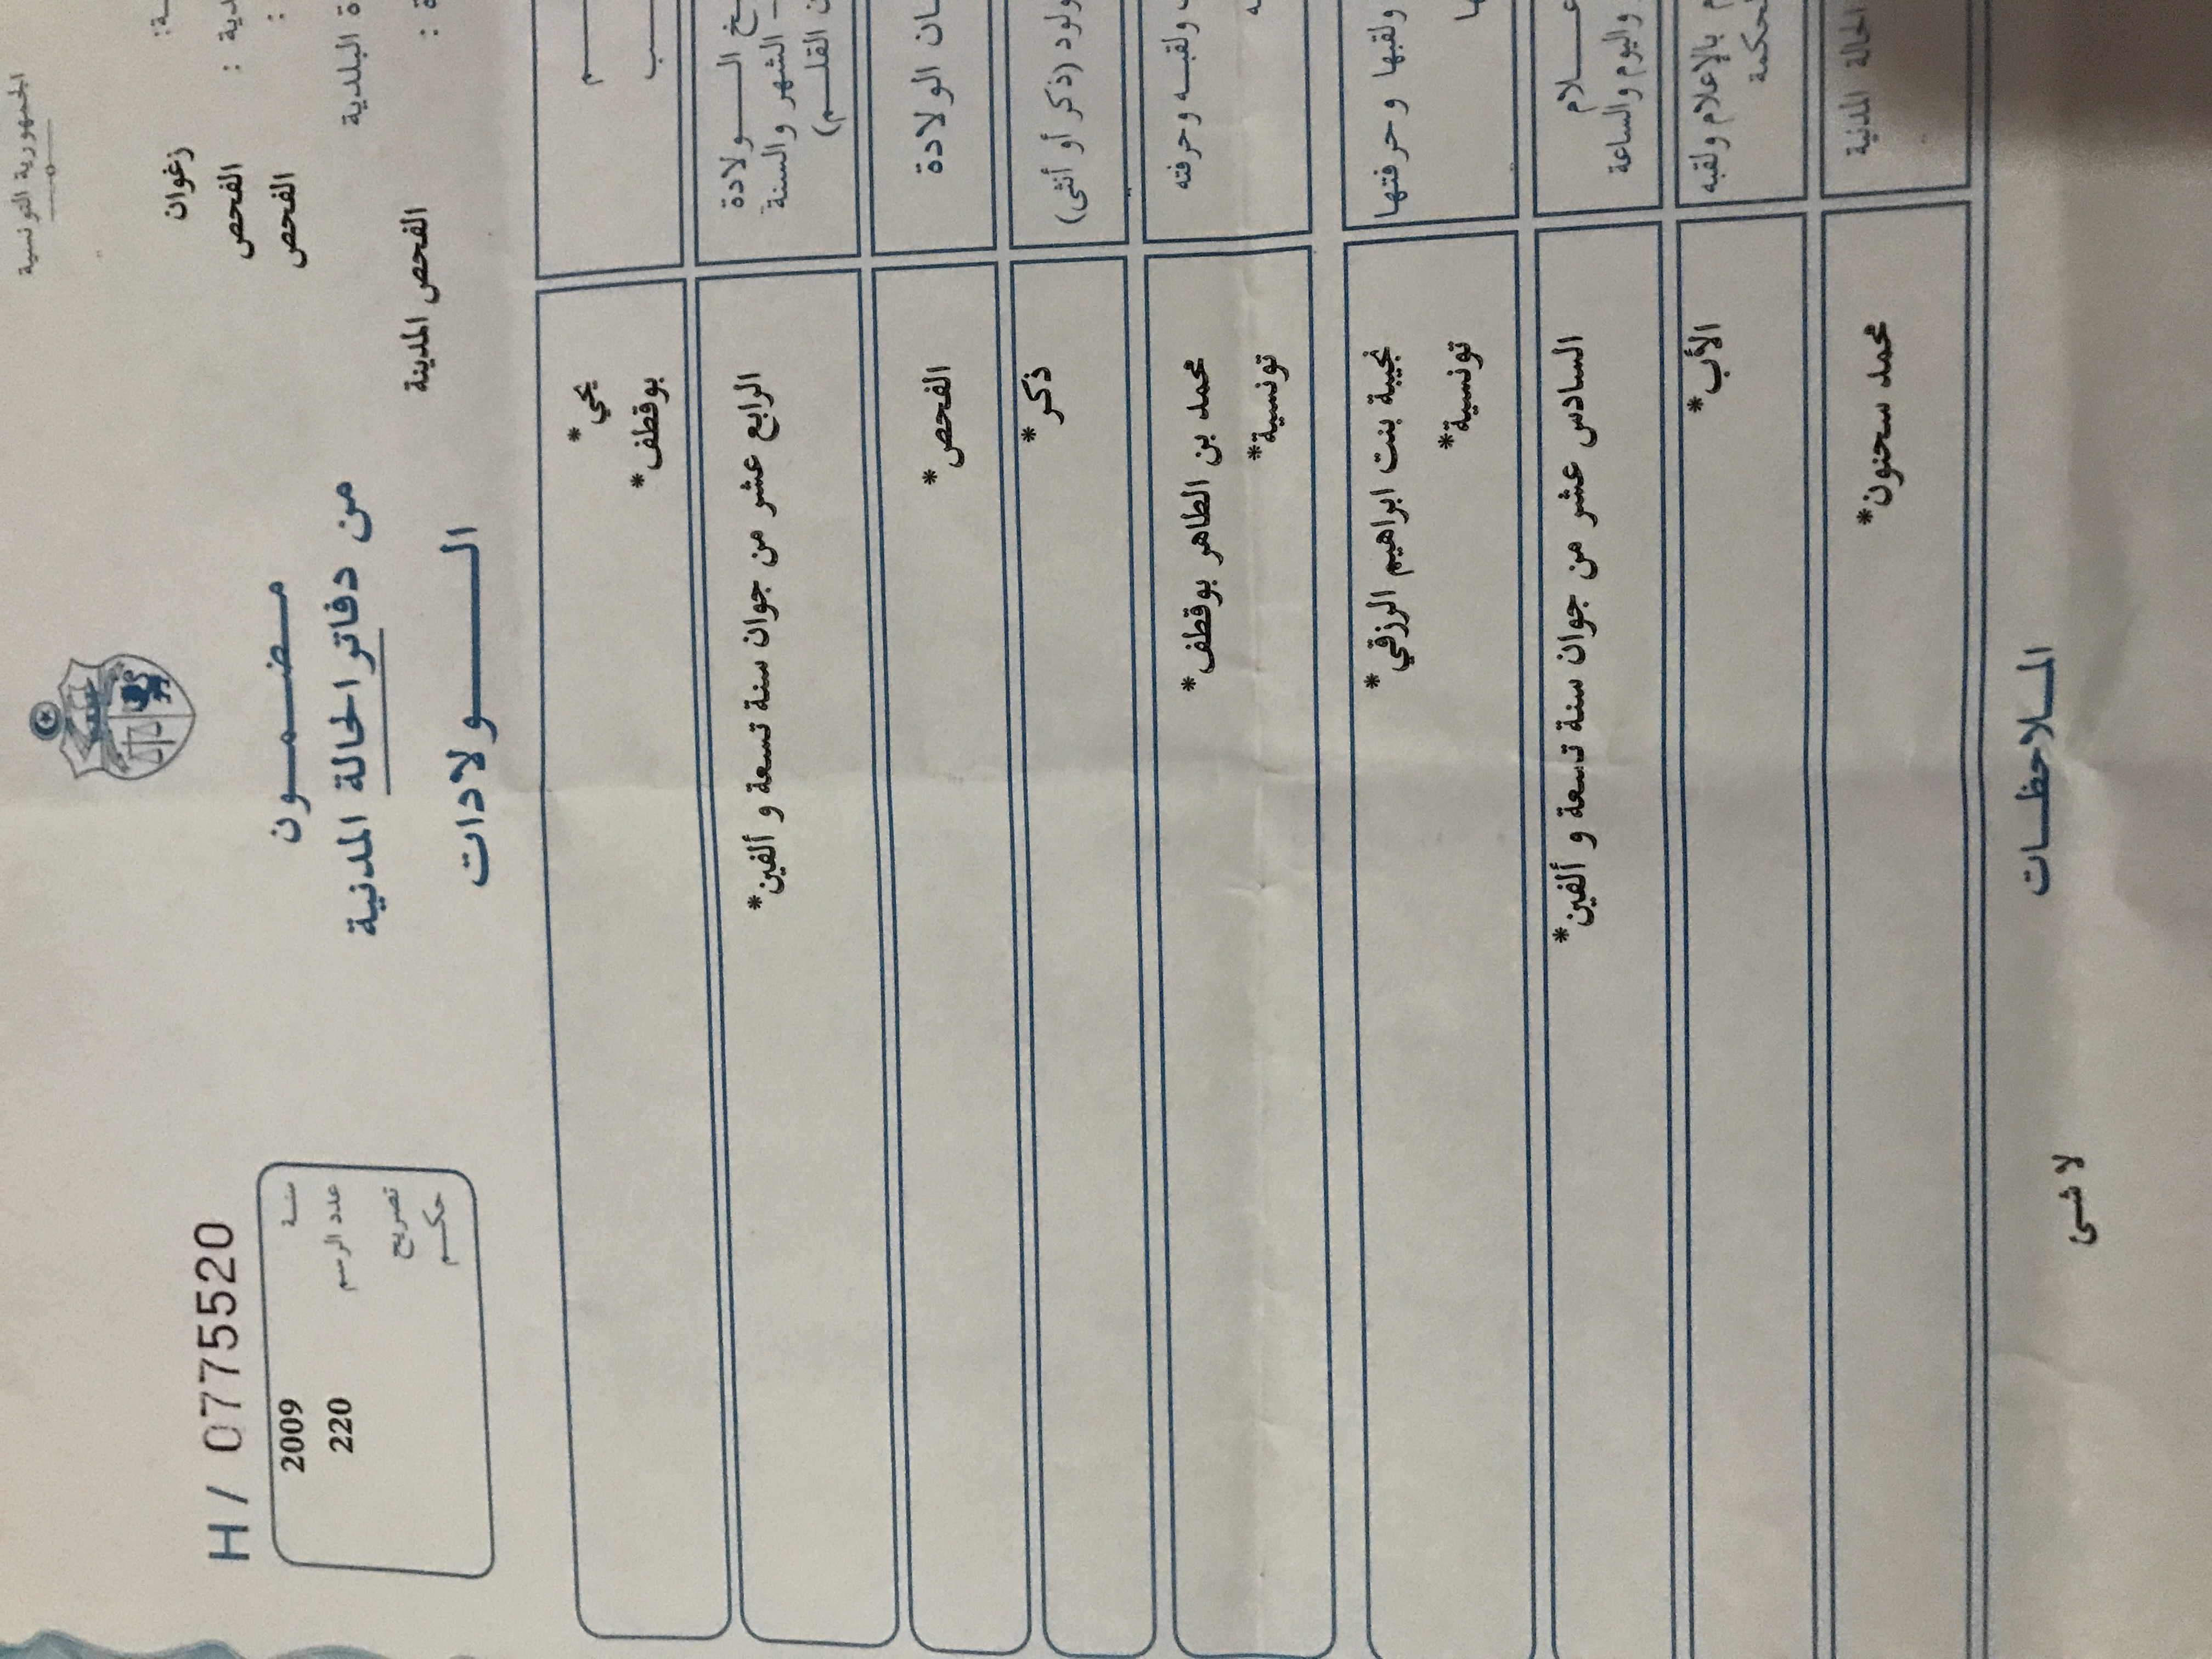 الجمهورية التونسية
زغوان
الفحص
الفحص
البلدية
الفحص المدينة
مضمون
من دفاتر الحالة المدنية
الولادات
H / 0775520
سنة 2009
عدد الرسم 220
تصريح
حكم
يحي*
بوقطف*
الولادة
الشهر والسنة
القلم)
الرابع عشر من جوان سنة تسعة و ألفين*
الولادة
الفحص*
(ذكر أو أنثى)
ذكر*
ولقبه وحرفته
محمد بن الطاهر بوقطف*
تونسية*
ولقبها و حرفتها
نجيبة بنت ابراهيم الرزقي*
تونسية*
واليوم والساعة
السادس عشر من جوان سنة تسعة و ألفين*
بالإعلام ولقبه
الأب*
الحالة المدنية
محمد سحنون*
الملاحظات
لا شىء